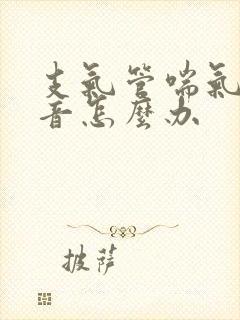 支氣管喘氣
音怎麼办
披薩